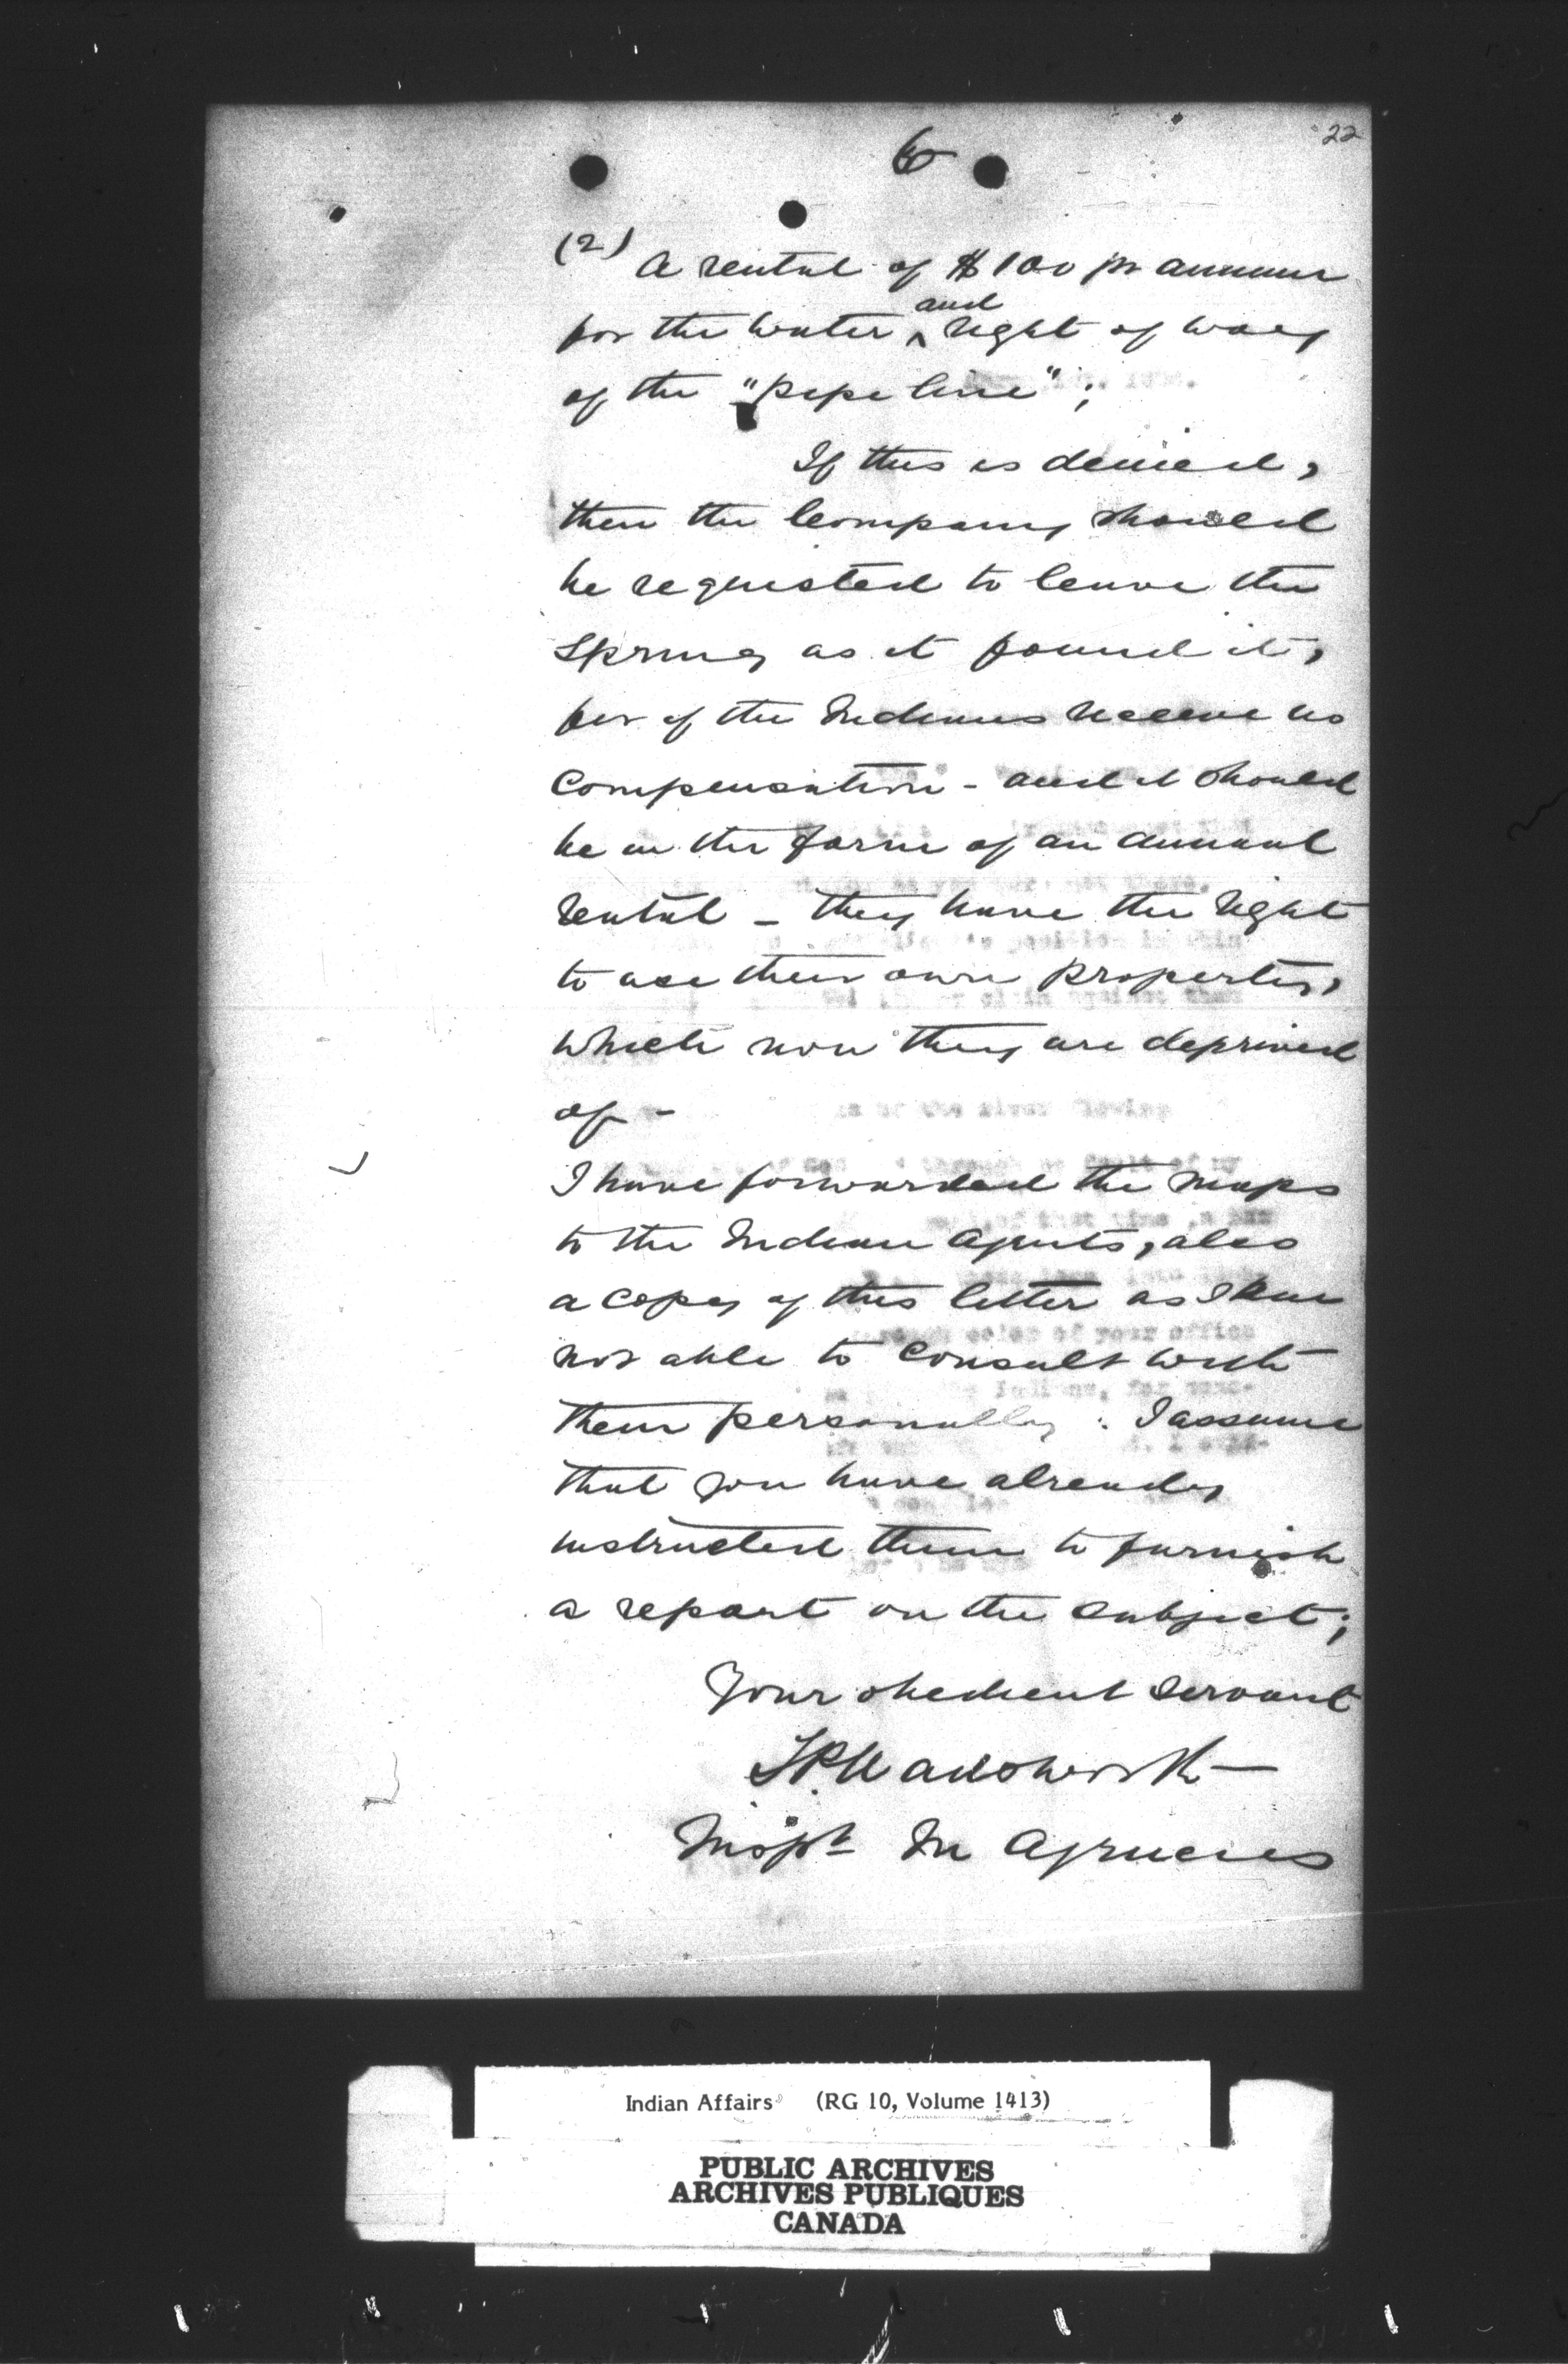 22
6
(2) A rental of $100 pr annum
for the water and right of way
of the "pipe line";
If this is denied,
then the Company should
be requested to leave the
Spring as it found it,
for if the Indians receive no
Compensation - and it should
be in the form of an annual
rental - they have the right
to use their own property,
which now they are deprived
of -
I have forwarded the maps
to the Indian Agents, also
a copy of this letter as I am
not able to Consult with
them personally: I assume
that you have already
instructed them to furnish
a report on the subject;
Your obedient Servant
T.P. Wadsworth
Inspr In Agencies
Indian Affairs (RG 10, Volume 1413)
PUBLIC ARCHIVES
ARCHIVES PUBLIQUES
CANADA